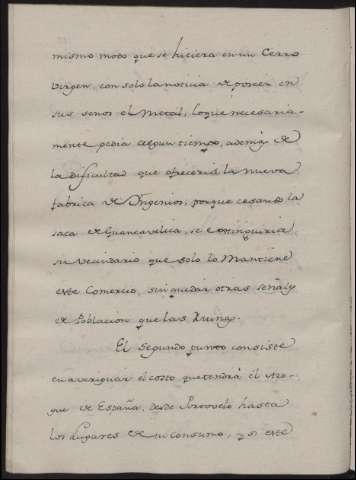 mismo modo que se hiciera en un Cerro
Virgen, con solo la noticia de poseer en
sus senos el Metal, lo que necesaria-
mente pedia algun tiempo, ademas de
la dificultad que ofreceria la nueva
fabrica de Ingenios, porque cesando la
saca de Guancavelica, se extinguiria
su vecindario que solo lo Mantiene
este Comercio, sin quedar otras señales
de Poblacion que las Ruinas.
El Segundo punto consiste
en averiguar el costo que tendrá el Azo-
gue de España, desde Portovelo hasta
los Lugares de su Consumo, y si este